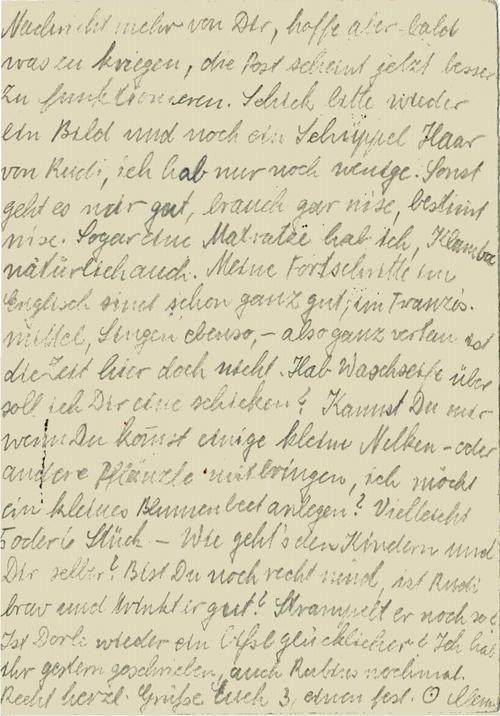 Nachricht mehr von Dir, hoffe aber bald
was zu kriegen, die Post scheint jetzt besser
zu funktionieren. Schick bitte wieder
ein Bild und noch ein Schüppel Haar
von Rudi, ich hab nur noch wenige. Sonst
geht es mir gut, brauch gar nise, bestimt
nise. Sogar eine Matratze hab ich,
natürlich auch. Meine Fortschritte im
Englisch sind schon ganz gut, im Französ.
mittel, Singen ebenso, - also ganz vertan ist
die Zeit hier doch nicht. Hab Waschseife über
soll ich Dir eine schicken? Kannst Du mir
wenn Du komst einige kleine Nelken - oder
andere Pflänzle mitbringen, ich möcht
ein kleines Blumenbeet anlegen? Vielleicht
5 oder 6 Stück - Wie geht's den Kindern und
Dir selber? Bist Du noch recht müd, ist Rudi
brav und trinkt er gut? Strampelt er noch so?
Ist Dorle wieder ein bißl glücklicher? Ich hab
ihr gestern geschrieben, auch nochmal.
Recht herzl. Grüße Euch 3, einen fest.